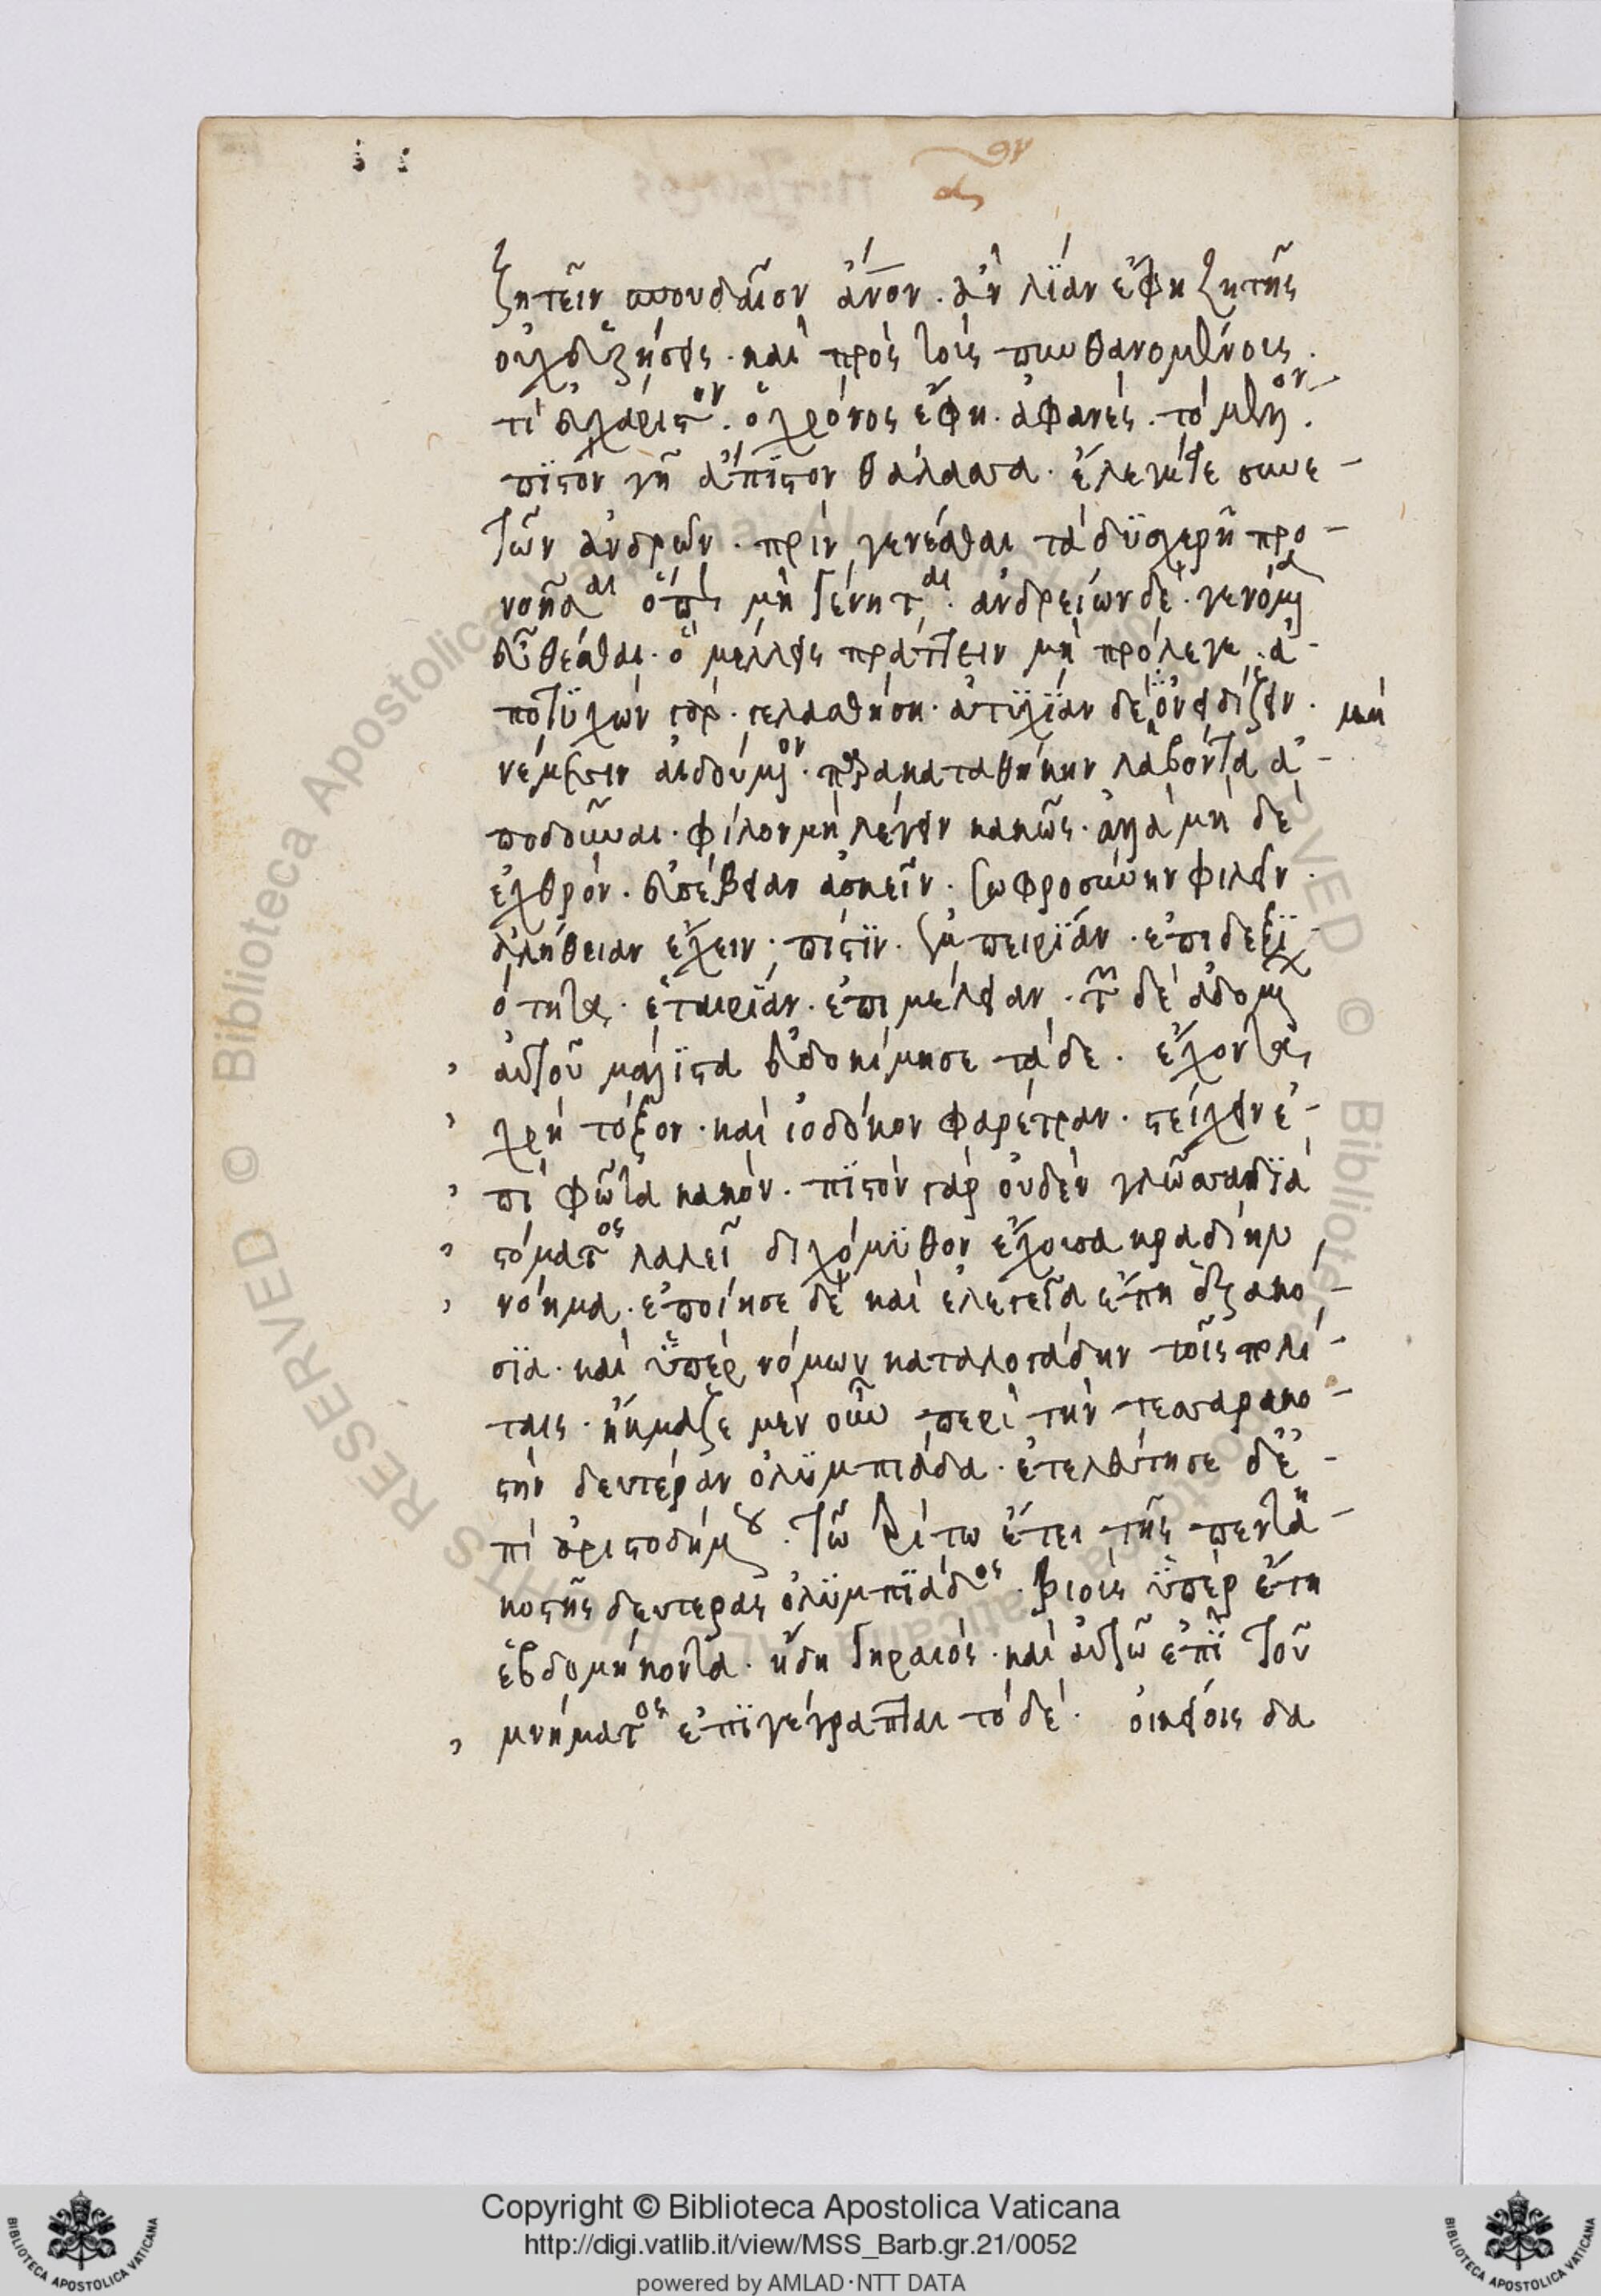 ζητεῖν σπουδαῖον ἄνον· ἂν λίαν ἔφη ζητῆς
οὐχ εὑρήσεις· καὶ πρὸς τοὺς πυνθανομένους·
τί εὐχάριστον· ὁ χρόνος ἔφη· ἀφανές· τὸ μέλλον·
πιστὸν γῆ ἄπιστον θάλασσα· ἔλεγέ τε συνε-
τῶν ἀνδρῶν· πρὶν γενέσθαι τὰ δυσχερῆ προ-
νοῆσαι ὅπως μὴ γένηται· ἀνδρείων δὲ· γενόμενα
εὖ θέσθαι· ὃ μέλλεις πράττειν μὴ πρόλεγε· ἀ-
ποτυχὼν γὰρ· γελασθήση· ἀτυχίαν δὲ ὀνειδίζειν· μὴ
νέμεσιν αἰδούμενον· παρακαταθήκην λαβόντα ἀ-
ποδοῦναι· φίλον μὴ λέγειν κακῶς· ἀλλὰ μὴ δὲ
ἐχθρόν· εὐσέβειαν ἀσκεῖν· σωφροσύνην φιλεῖν·
ἀλήθειαν ἔχειν· πίστιν· ἐμπειρίαν· ἐπιδεξι-
ότητα· ἑταιρίαν· ἐπιμέλειαν· τῶν δὲ ἀδομένων
αὐτοῦ μάλιστα εὐδοκίμησε τάδε· ἔχοντα
χρὴ τόξον· καὶ ἰοδόκον φαρέτραν· στείχειν ἐ-
πὶ φῶτα κακόν· πιστὸν γὰρ οὐδὲν γλῶσσα διὰ
στόματος λαλεῖ διχόμυθον ἔχουσα κραδίην
νόημα· ἐποίησε δὲ καὶ ἐλεγεῖα ἔπη ἑξακό-
σια· καὶ ὑπὲρ νόμων καταλογάδην τοῖς πολί-
ταις· ἤκμαζε μὲν οὖν περὶ τὴν τεσσαρακο-
στὴν δευτέραν ὀλυμπιάδα· ἐτελεύτησε δ' ἐ-
πὶ ἀριστοδήμου· τῶ τρίτω ἔτει τῆς πεντη-
κοστῆς δευτέρας ὀλυμπιάδος· βιοὺς ὑπὲρ ἔτη
ἑβδομήκοντα· ἤδη γηραιός· καὶ αὐτῶ ἐπὶ τοῦ
μνήματος ἐπιγέγραπται τόδε· οἰκείοις δα
Copyright © Biblioteca Apostolica Vaticana
http://digi.vatlib.it/view/MSS_Barb.gr.21/0052
powered by AMLAD·NTT DATA